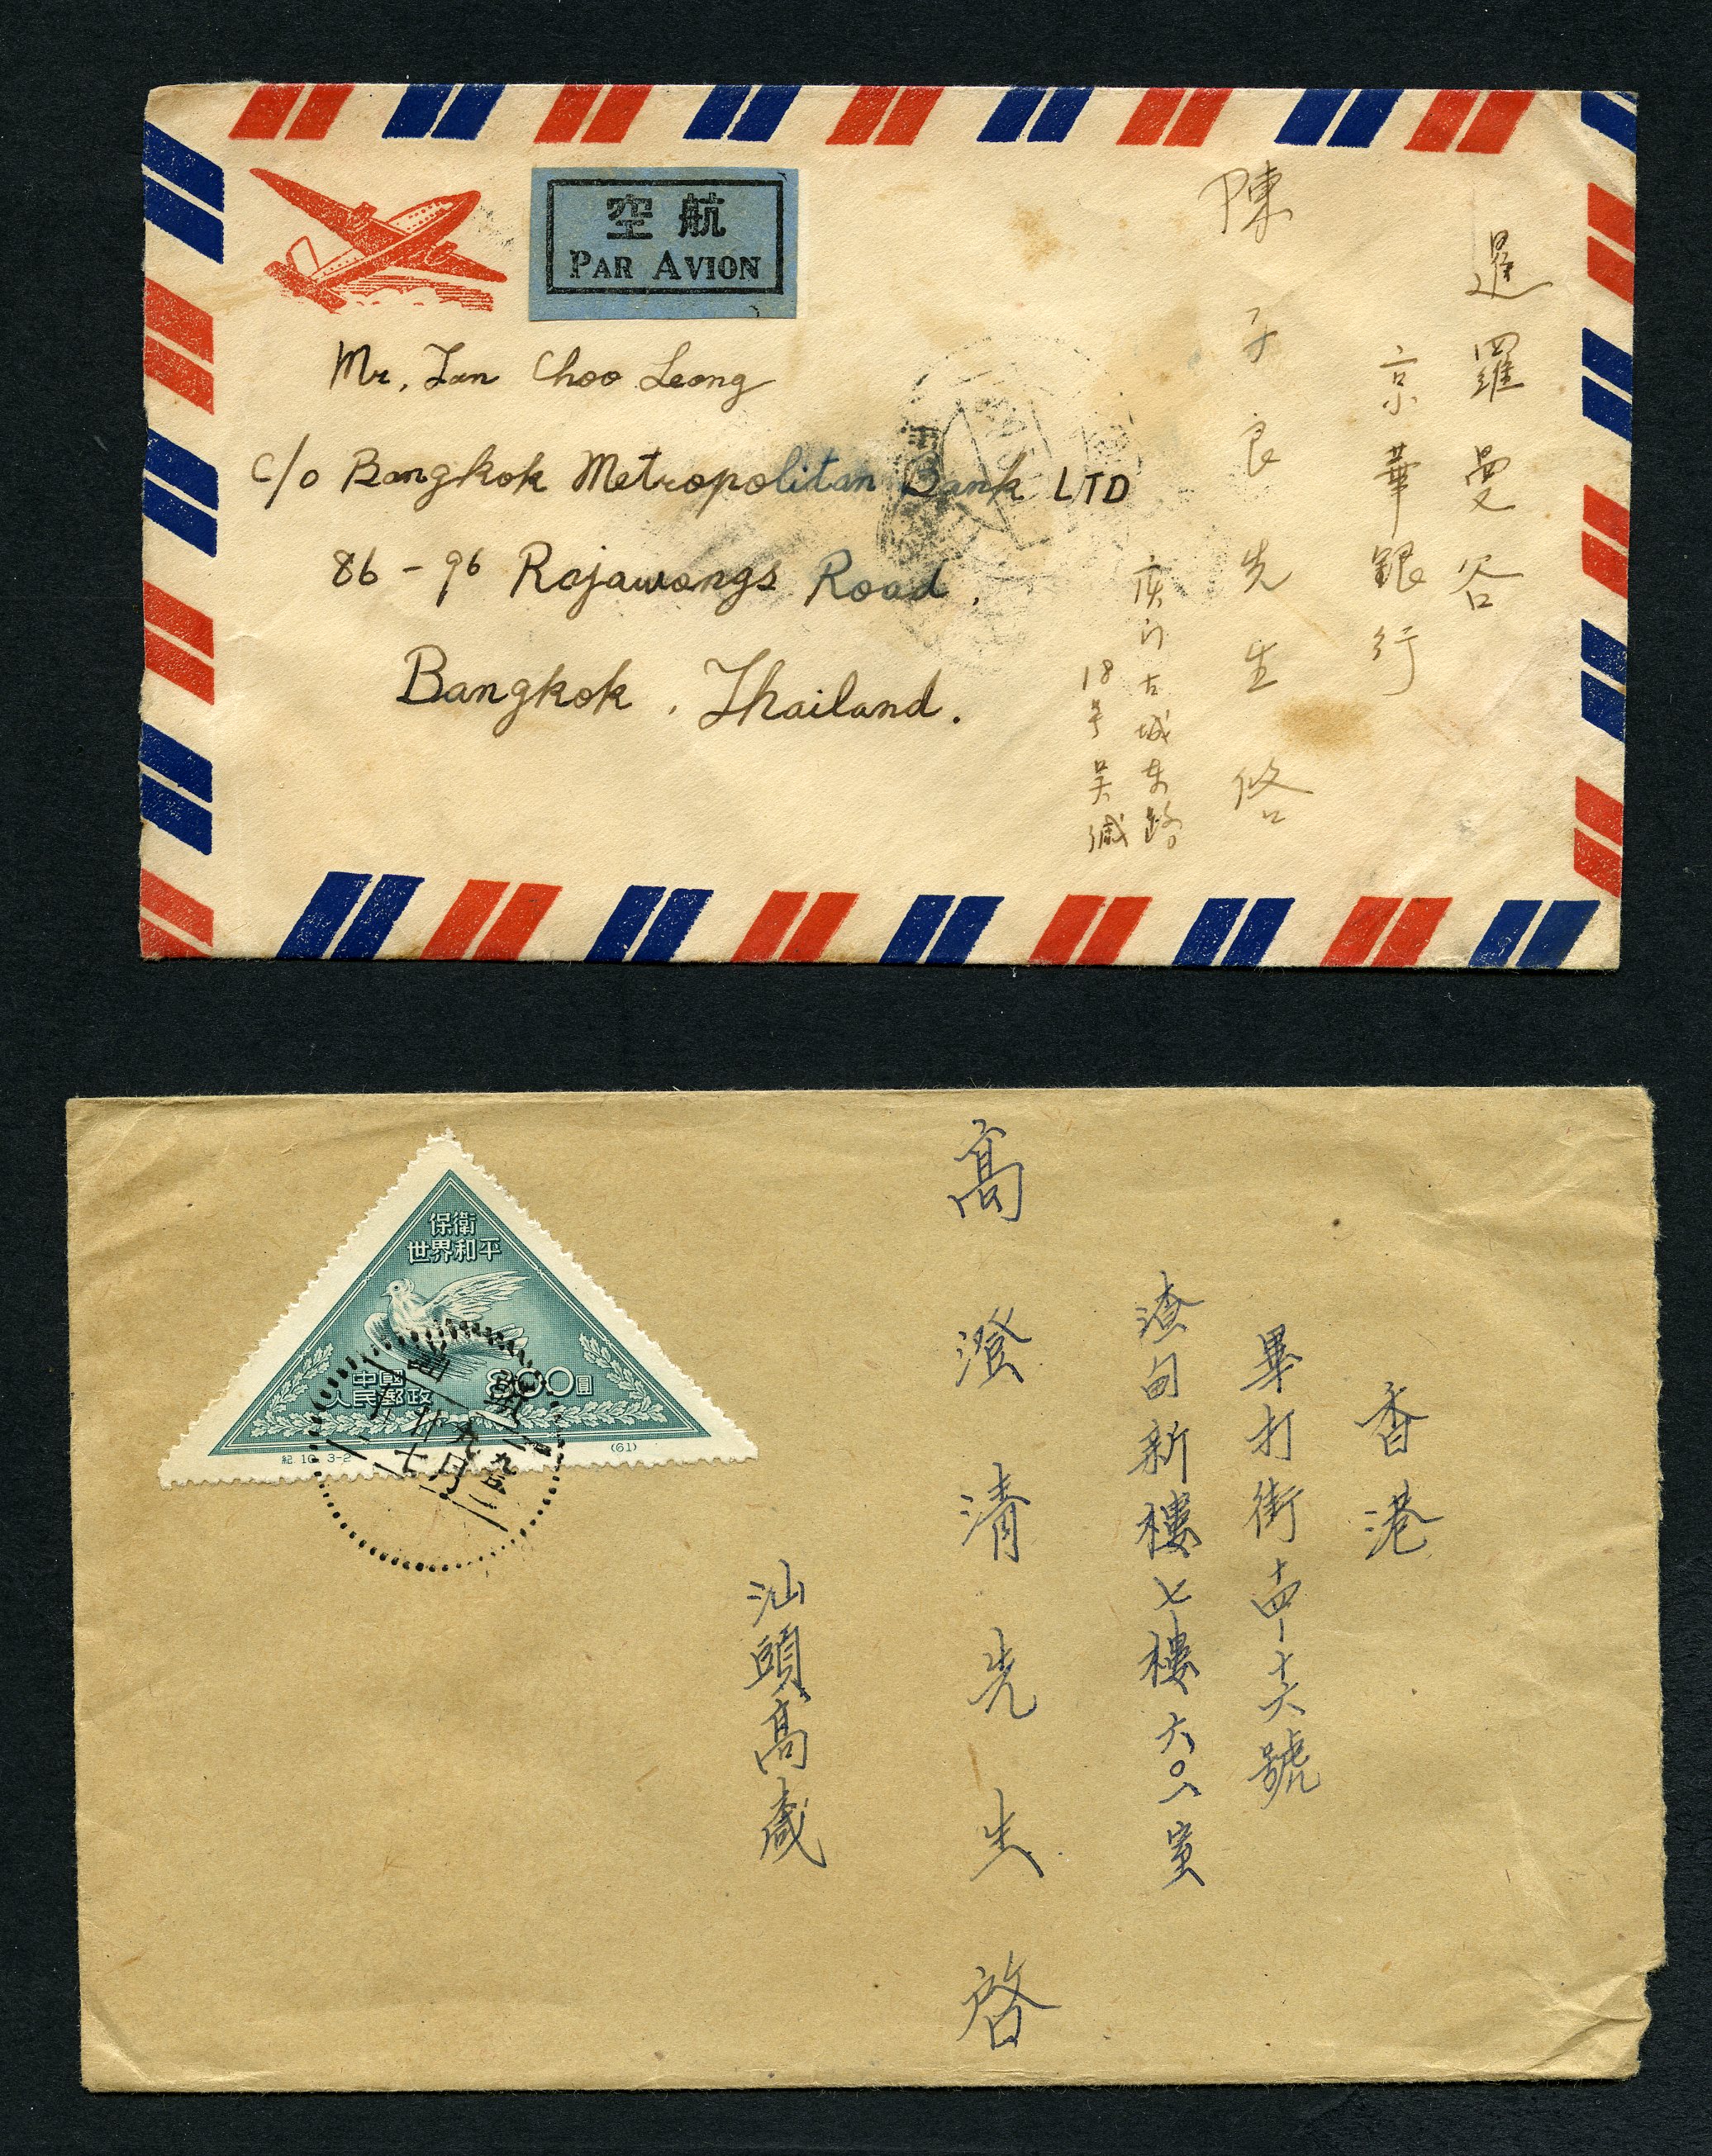 空航
PAR AVION
Mr. Tan Choo Leong
c/o Bangkok Metropolitan Bank LTD
86 - 96 Rajawongs Road,
Bangkok, Thailand.
暹羅曼谷
京華銀行
陳子良先生啓
厦门古城东路
18号吴缄
保衛
世界和平
中國
人民郵政
800圓
紀.10. 3-2
(61)
香港
畢打街十四—十六號
渣甸新樓七樓六〇八室
高澄清先生啓
汕頭高緘